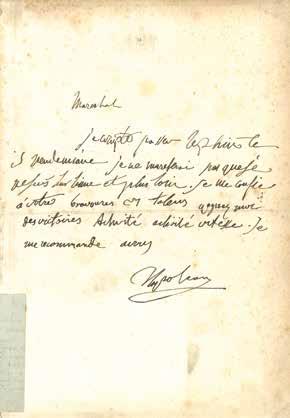 Marechal
je compte passer le Rhin le
15 Vendemiaire je ne m'arreterai pas que je
ne sois sur
et plus loin. je me confie
à votre bravoure et talens gagnez moi
des victoires Activité activité vitesse. Je
me recommande a vous
Napoleon